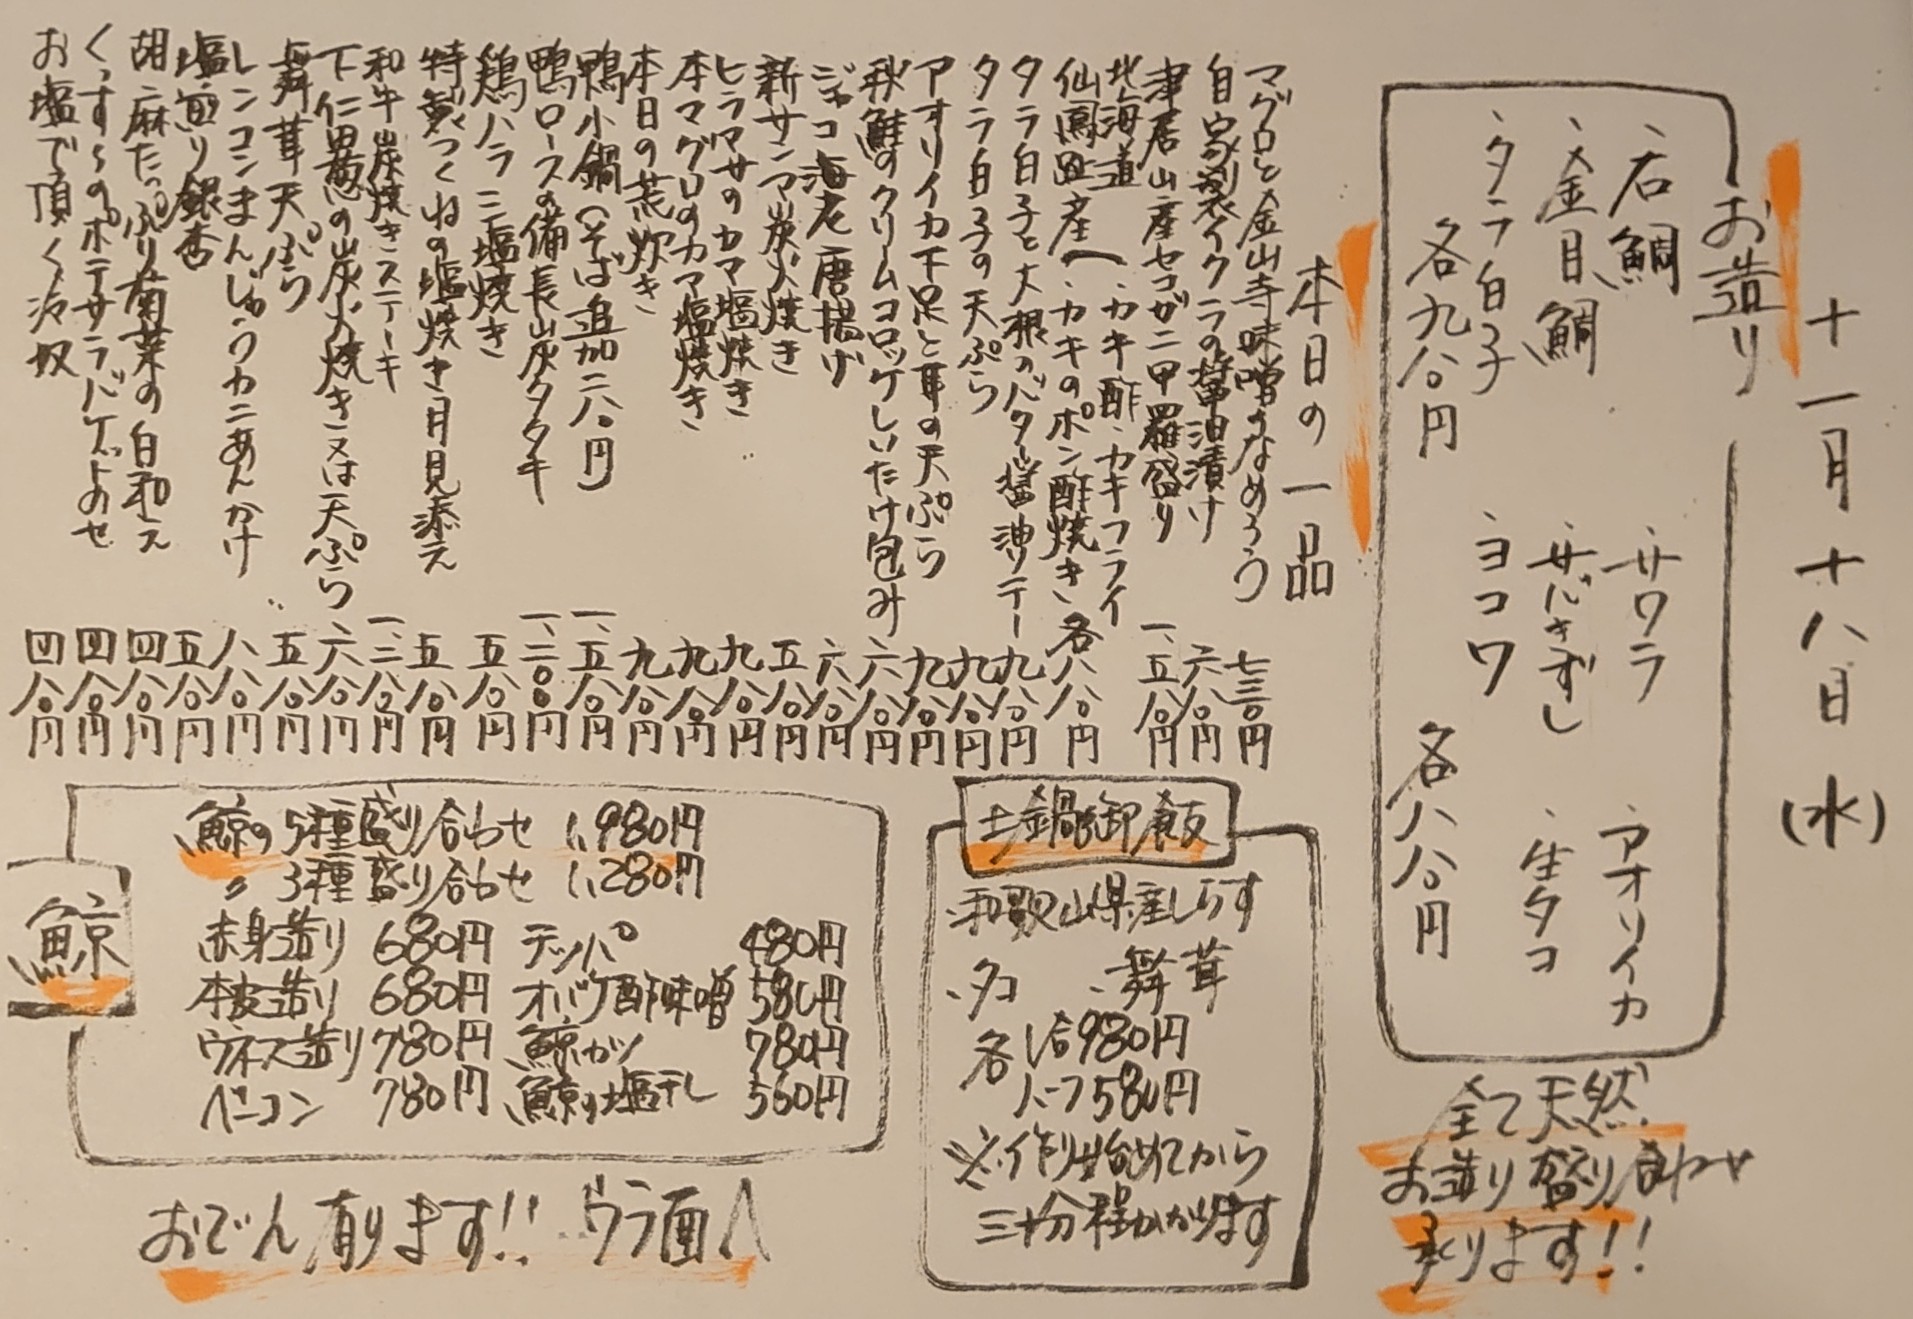 十一月十八日(水)
お造り
、石鯛
、金目鯛
、タラ白子
各九八〇円
、サワラ
、サバきずし
、ヨコワ
、アオリイカ
、生タコ
各八八〇円
全て天然
お造り盛り合わせ
承ります!!
本日の一品
マグロと金山寺味噌のなめろう 七三〇円
自家製イクラの醤油漬け 六八〇円
津居山産セコガニ甲羅盛り 一、五八〇円
北海道 、カキ酢、カキフライ
仙鳳趾産 、カキのポン酢焼き 各八八〇円
タラ白子と大根のバター醤油ソテー 九八〇円
タラ白子の天ぷら 九八〇円
アオリイカ下足と耳の天ぷら 九八〇円
秋鮭のクリームコロッケしいたけ包み 六八〇円
ジャコ海老唐揚げ 六八〇円
新サンマ炭火焼き 五八〇円
ヒラマサのカマ塩焼き 九八〇円
本マグロのカマ塩焼き 九八〇円
本日の荒炊き 九八〇円
鴨小鍋(そば追加二八〇円) 一、五八〇円
鴨ロースの備長炭タタキ 一、二〇〇円
鶏ハラミ塩焼き 五八〇円
特製つくねの塩焼き月見添え 五八〇円
和牛炭焼きステーキ 一、二八〇円
下仁田葱の炭火焼き又は天ぷら 六八〇円
舞茸天ぷら 五八〇円
レンコンまんじゅうカニあんかけ 八八〇円
塩煎り銀杏 五八〇円
胡麻たっぷり菊菜の白和え 四八〇円
くっすーのポテサラバゲットのせ 四八〇円
お塩で頂く冷奴 四八〇円
土鍋御飯
、和歌山県産しらす
、タコ 、舞茸
各1合980円
ハーフ580円
※作り始めてから
三十分程かかります
鯨
鯨の5種盛り合わせ 1,980円
〃 3種盛り合わせ 1,280円
赤身造り 680円 テッパ 480円
本皮造り 680円 オバケ酢味噌 580円
ウネス造り 780円 鯨カツ 780円
ベーコン 780円 鯨の塩干し 560円
おでん有ります!! ウラ面へ